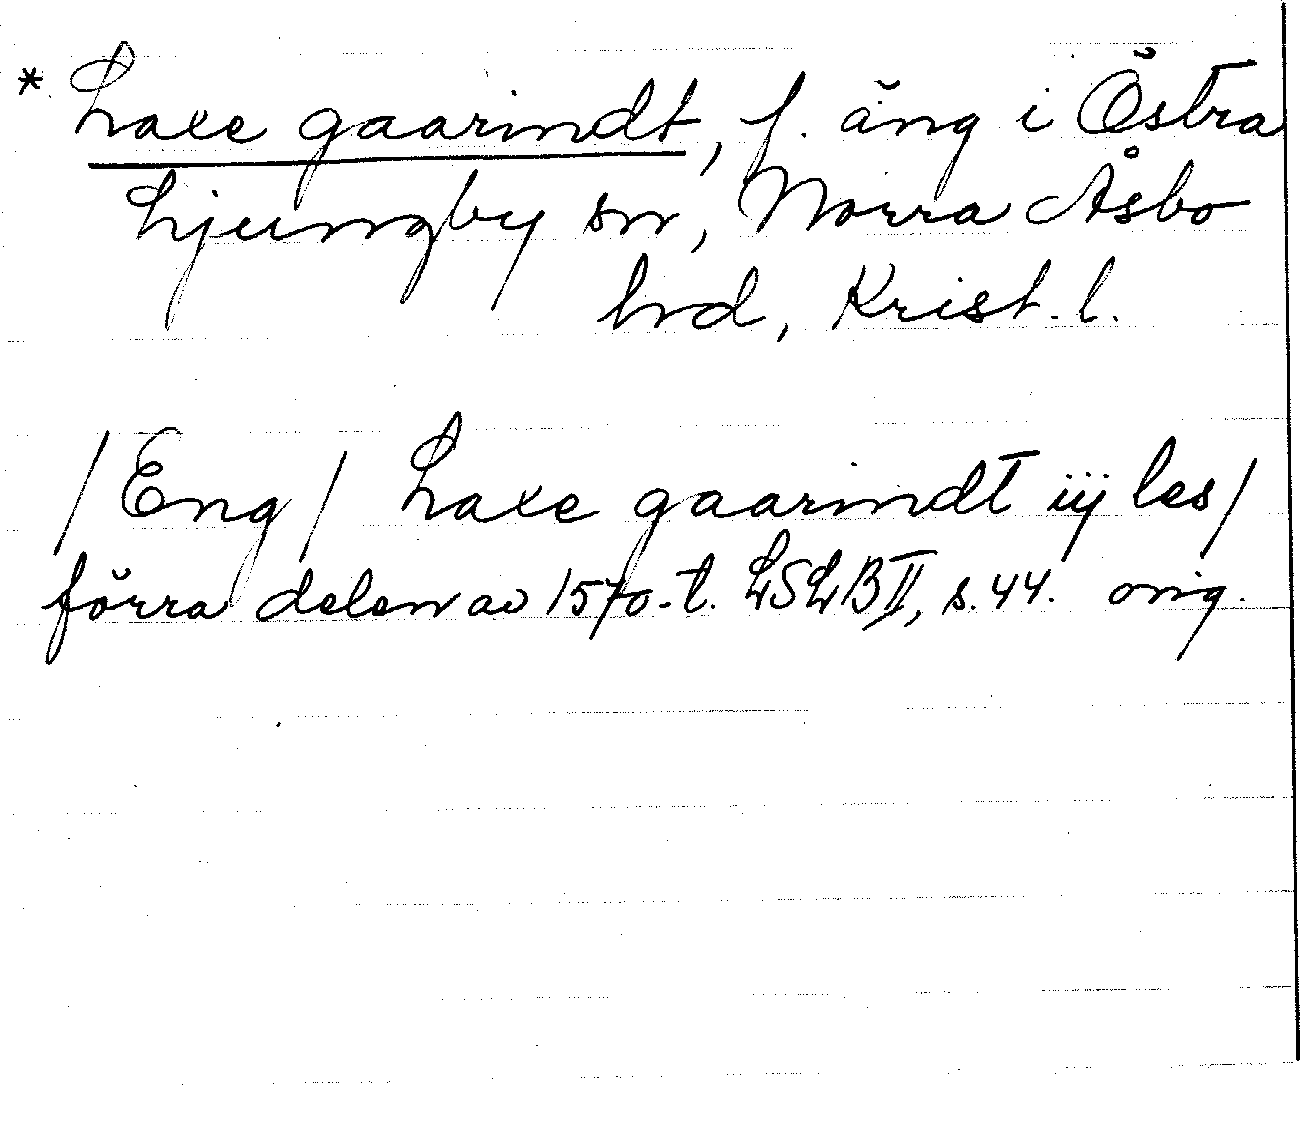 * Laxe gaarindt, f. äng i Östra
Ljungby sn, Norra Åsbo
hrd, Krist. l.
/Eng/ Laxe gaarindt iij les/
förra delen av 1570-t. LSLB II, s. 44. orig.